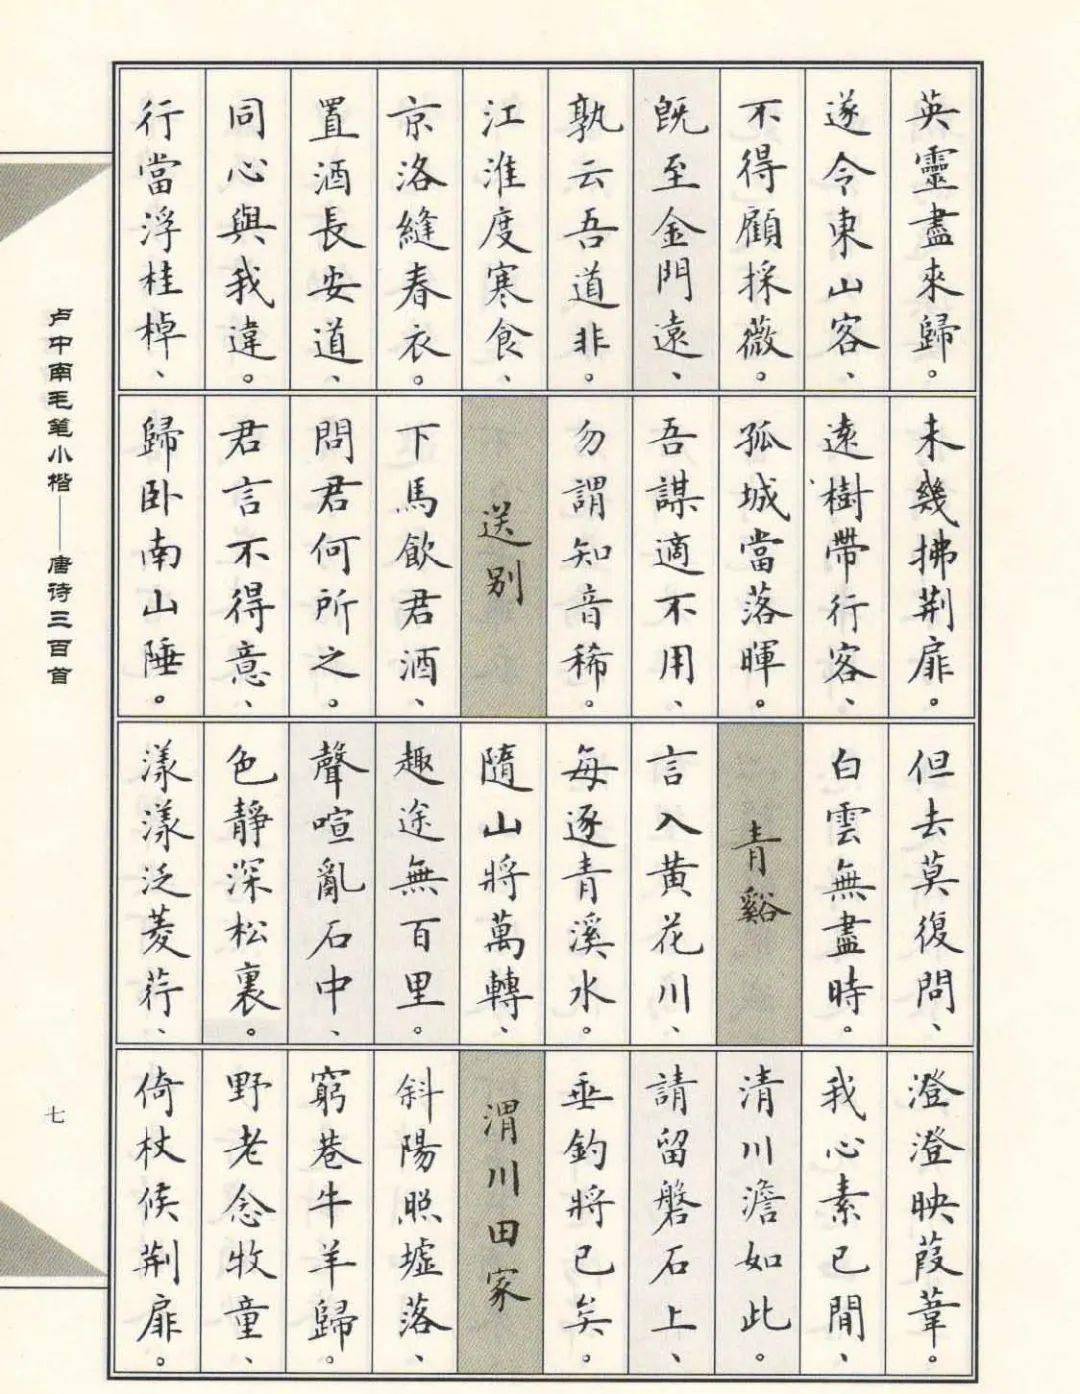 英靈盡來歸。
遂令東山客、
不得顧採薇。
既至金門遠、
孰云吾道非。
江淮度寒食、
京洛縫春衣。
置酒長安道、
同心與我違。
行當浮桂棹、
未幾拂荆扉。
遠樹帶行客、
孤城當落暉。
吾謀適不用、
勿謂知音稀。
送别
下馬飲君酒、
問君何所之。
君言不得意、
歸卧南山陲。
但去莫復問、
白雲無盡時。
青谿
言入黄花川、
每逐青溪水。
隨山將萬轉、
趣途無百里。
聲喧亂石中、
色靜深松裏。
漾漾泛菱荇、
澄澄映葭葦。
我心素已閒、
清川澹如此。
請留磐石上、
垂釣將已矣。
渭川田家
斜陽照墟落、
窮巷牛羊歸。
野老念牧童、
倚杖候荆扉。
卢中南毛笔小楷——唐诗三百首
七